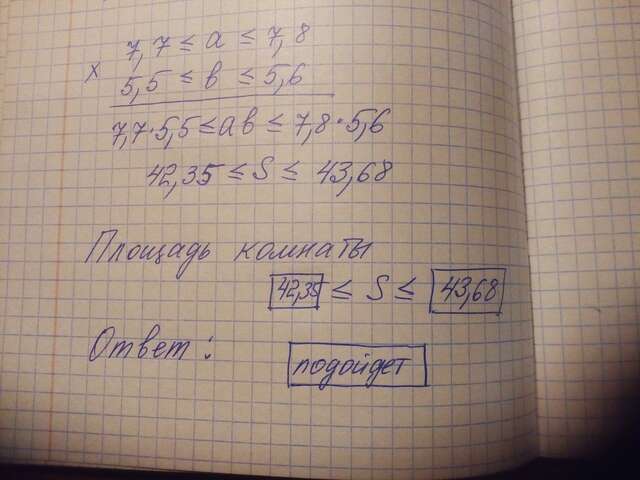 7,7 ≤ a ≤ 7,8
x
5,5 ≤ в ≤ 5,6
7,7·5,5 ≤ ав ≤ 7,8·5,6
42,35 ≤ S ≤ 43,68
Площадь комнаты
42,35 ≤ S ≤ 43,68
Ответ: подойдет